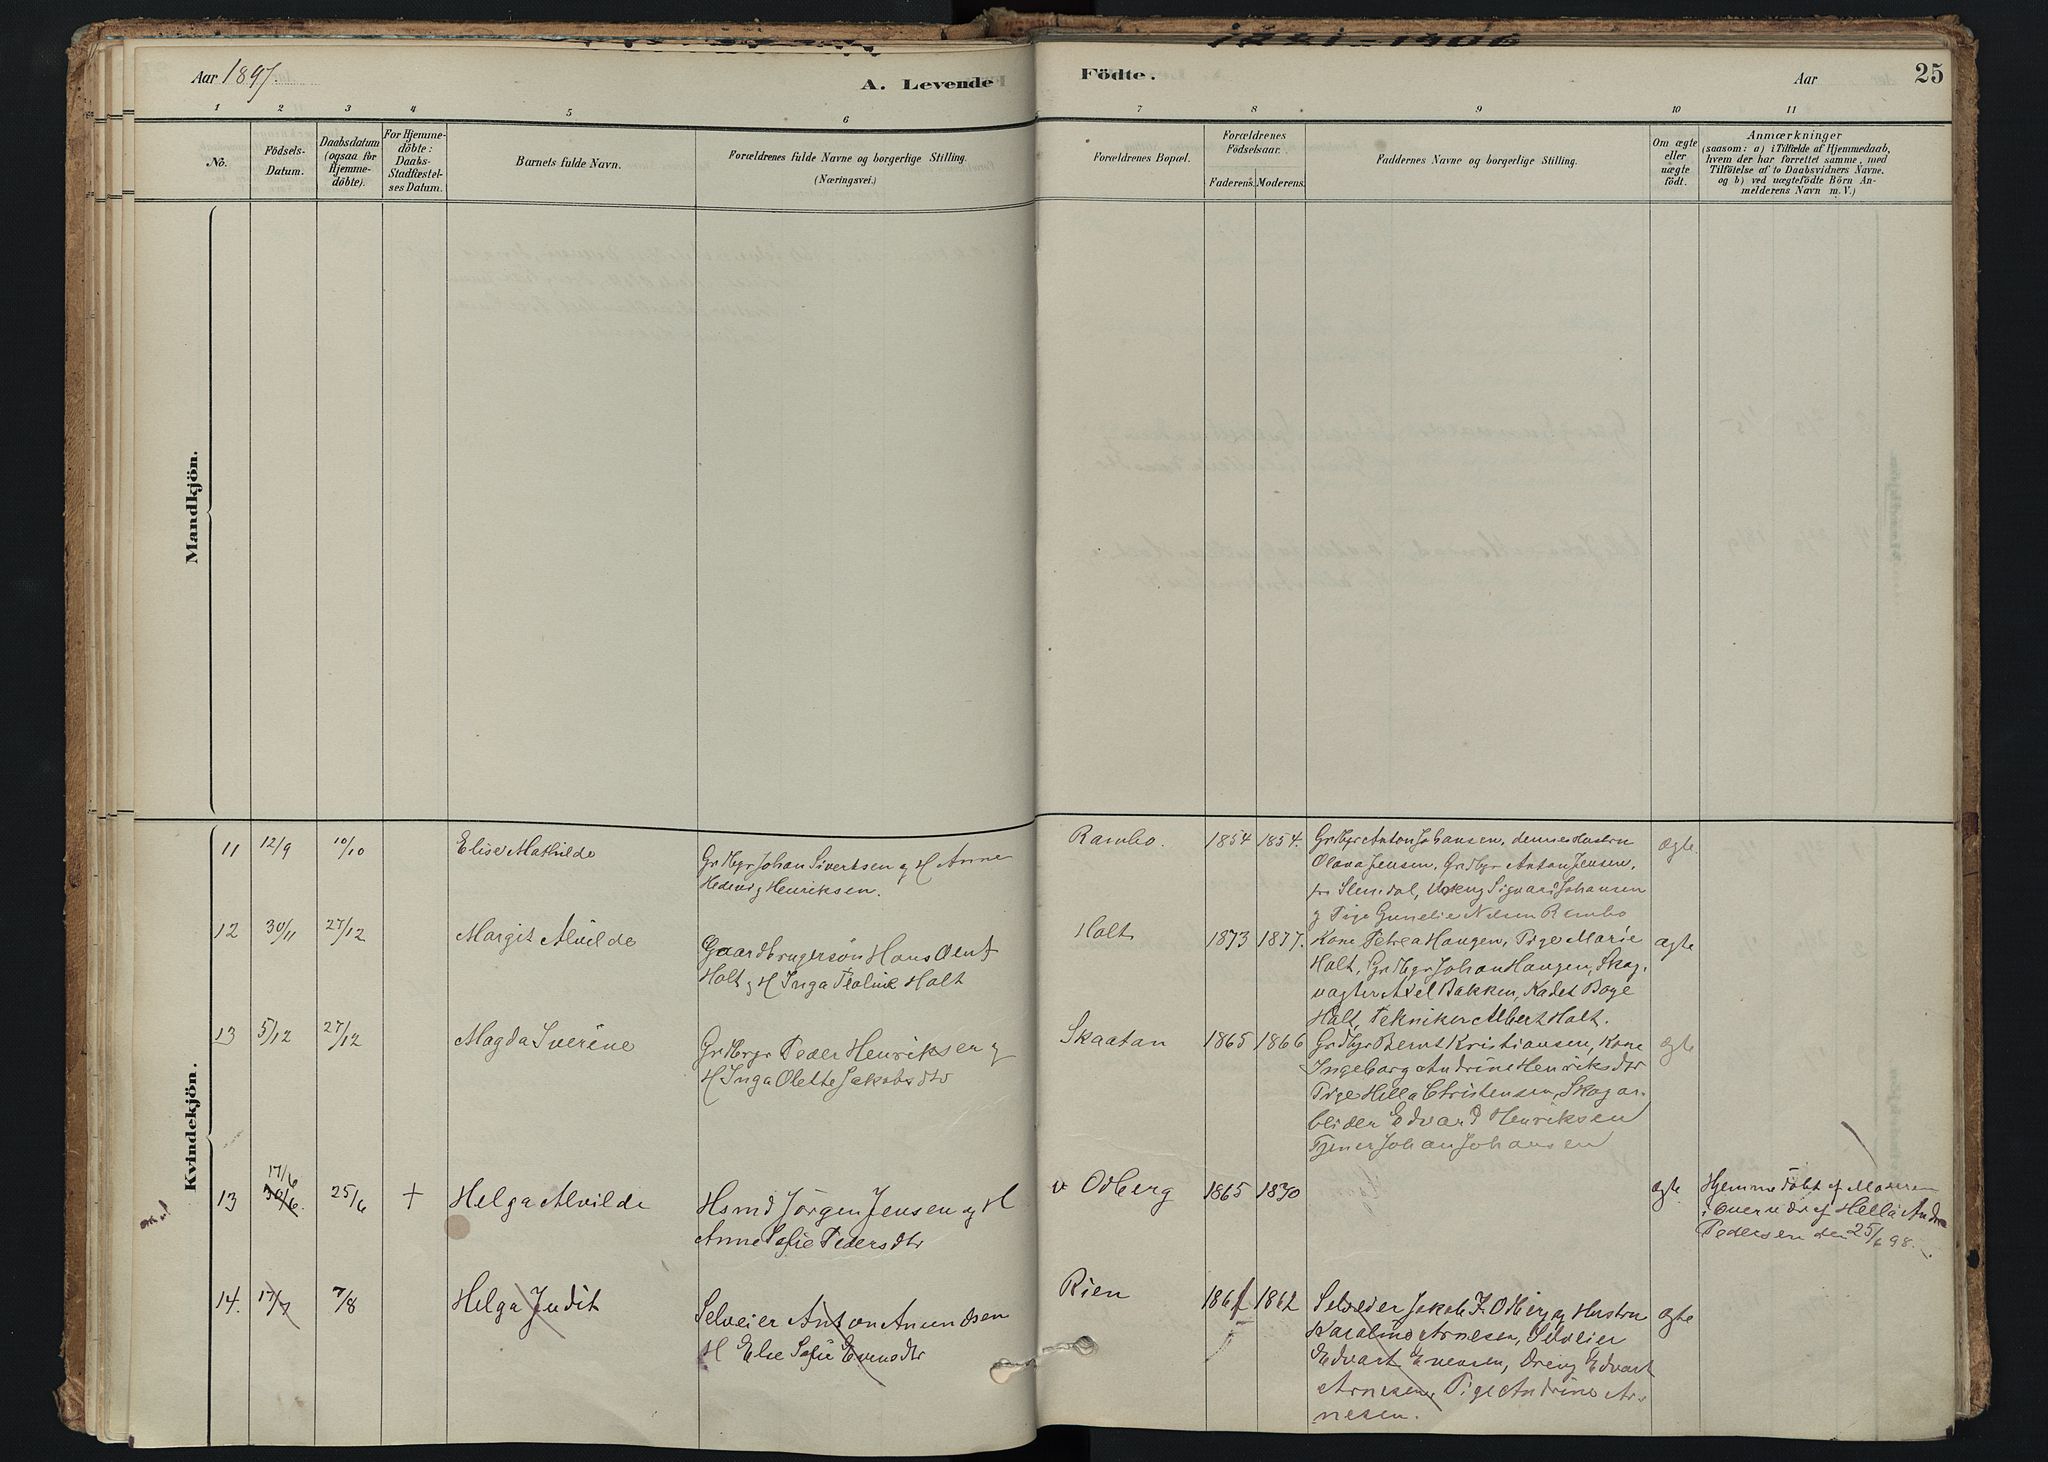 Aar 1897.
A. Levende
Födte.
Aar
25
1 2 3 4 5 6 7 8 9 10 11
No.
Födsels-
Datum.
Daabsdatum
(ogsaa for
Hjemme-
döbte).
For Hjemme-
döbte:
Daabs-
Stadfæstel-
ses Datum.
Barnets fulde Navn.
Forældrenes fulde Navne og borgerlige Stilling.
(Næringsvei.)
Forældrenes Bopæl.
Forældrenes
Födselsaar.
Faderens. Moderens.
Faddernes Navne og borgerlige Stilling.
Om ægte
eller
uægte
födt.
Anmærkninger
(saasom: a) i Tilfælde af Hjemmedaab,
hvem der har forrettet samme, med
Tilföielse af to Daabsvidners Navne.
og b) ved uægtefödte Börn An-
melderens Navn m. V.)
Mandkjön.
Kvindekjön.
11 12/9 10/10 Elise Mathilde
Grdbgr Johan Sivertsen og H Anne
Hedevig Henriksen.
Rambo. 1854 1854.
Grdbgr Anton Johansen, dennes Hustru
Olava Jensen, Grdbgr Anton Jensen,
Slemdal, Sigvard Johansen
g Pige Gunelie Nelsen Rambo
ægte.
12 30/11 27/12 Margit Alvilde
Gaardbrugersøn Hans Oluf
Holt, og H Inga Paline Holt
Holt 1873 1877.
Kone Petrea Haugen, Pige Marie
Holt, Grdbgr Johan Haugen, Skog-
vagter Axel Bakken, Kadet Boye
Holt, Tekniker Albert Holt.
ægte
13 5/12 27/12 Magda Sverine
Grdbrgr Peder Henriksen g
H Inga Olette Jakobsdtr
Skaatan 1865 1866
Grdbgr Bernt Kristiansen, Kone
Ingeborg Andrine Henriksdtr
Pige Hella Christensen, Skogar-
beider Edvard Henriksen
Tjener Johan Johansen
ægte
13 17/6 30/6. 25/6 + Helga Alvilde
Hsmd Jørgen Jensen og H
Anne Sofie Pedersdtr
v Odberg 1865 1870
ægte.
Hjemmedøbt af Moderen
i Overvær af Hella Andrea
Pedersen den 25/6 98.
14. 17/7 7/8 Helga Judit
Selveier Anton Amundsen
H Else Sofie Evensdtr
Rien 1862
Selveier Jakob J. Odberg og Hustru
Karoline Arnesen, Selveier
Edvart Evensen, Dreng Edvart
Arnesen, Pige Andrine Ar-
nesen.
ægte